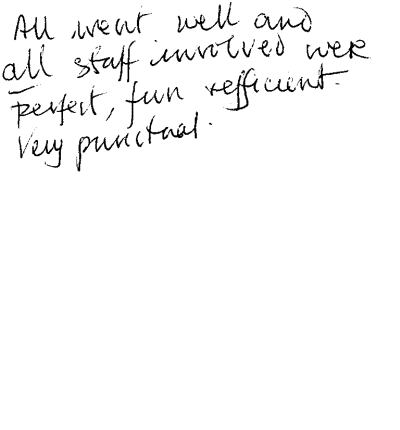 All went well and
all staff involved were
perfect, fun + efficient.
Very punctual.